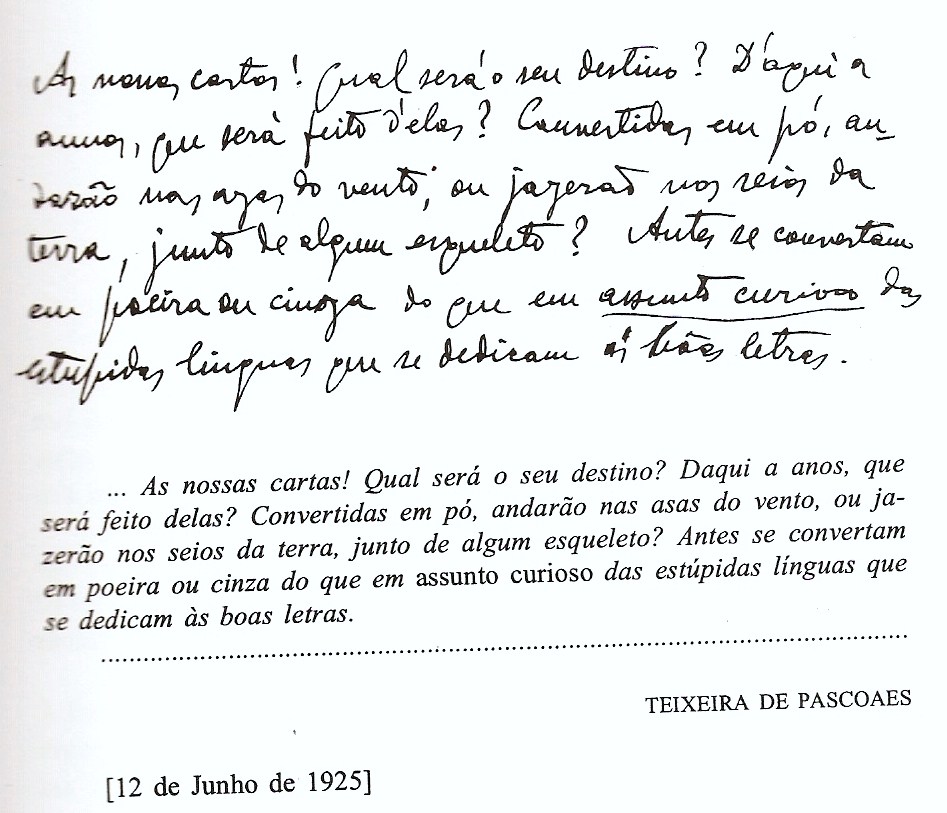 As nossas cartas! Qual será o seu destino? D'aqui a
annos, que será feito d'elas? Convertidas em pó, an-
darão nas azas do vento, ou jazerão nos seios da
terra, junto de algum esqueleto? Antes se convertam
em poeira ou cinza do que em assunto curioso das
estupidas linguas que se dedicam ás bôas letras.
... As nossas cartas! Qual será o seu destino? Daqui a anos, que
será feito delas? Convertidas em pó, andarão nas asas do vento, ou ja-
zerão nos seios da terra, junto de algum esqueleto? Antes se convertam
em poeira ou cinza do que em assunto curioso das estúpidas línguas que
se dedicam às boas letras.
................................................................................
TEIXEIRA DE PASCOAES
[12 de Junho de 1925]